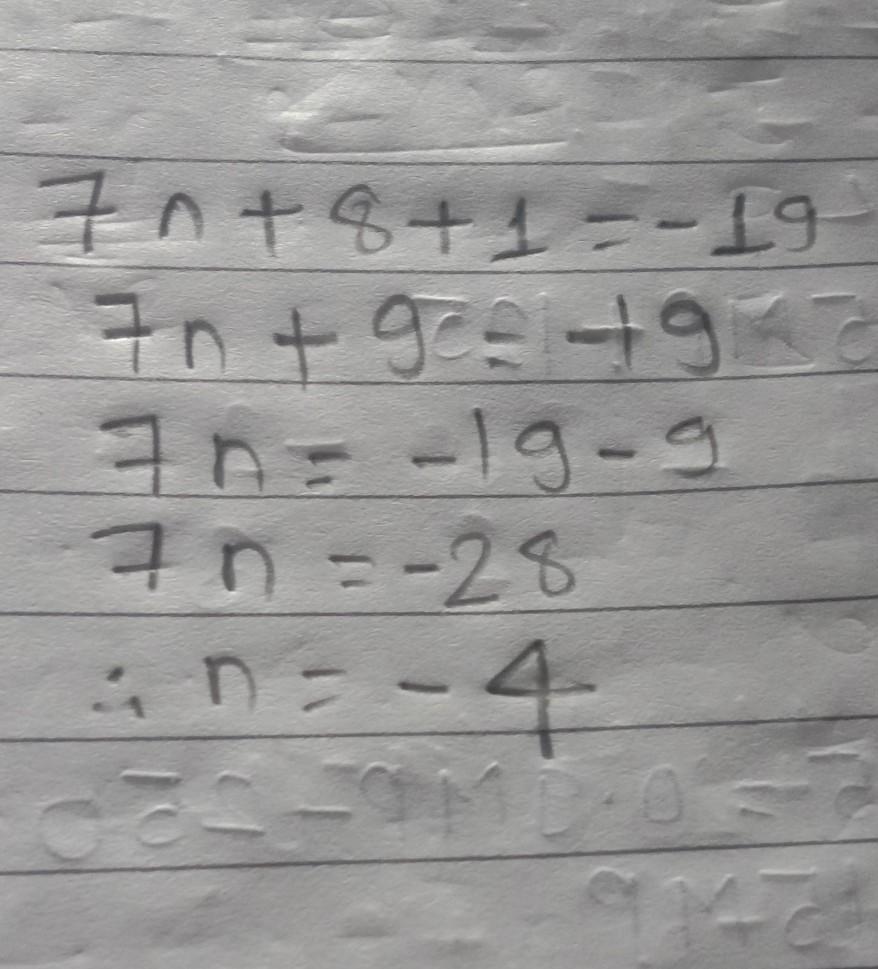 7n + 8 + 1 = -19
7n + 9 = -19
7n = -19 - 9
7n = -28
∴ n = -4